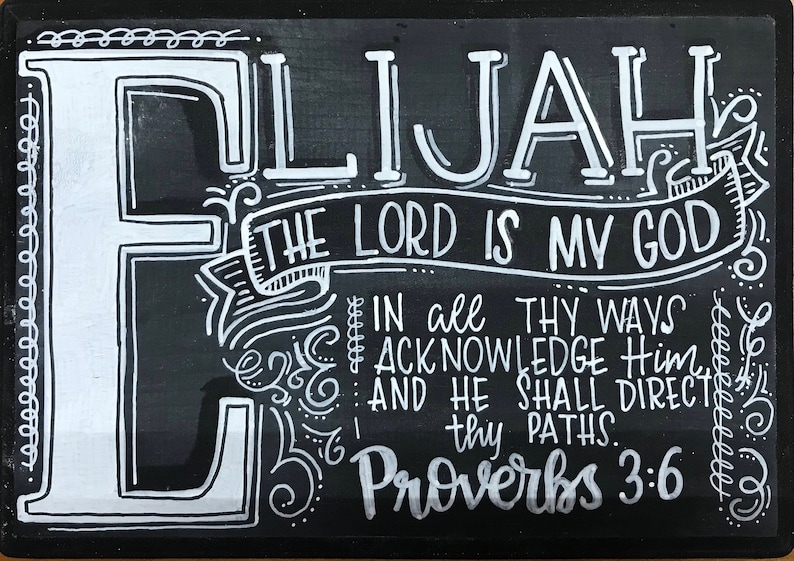 ELIJAH
THE LORD IS MY GOD
IN all THY WAYS
ACKNOWLEDGE Him,
AND HE SHALL DIRECT
thy PATHS.
Proverbs 3:6